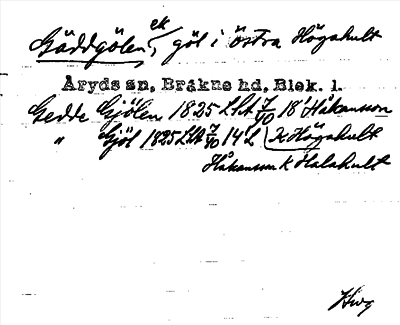 Gäddgölen, ek göl i östra Högahult
Åryds sn, Bräkne hd, Blek. l.
Gedde Gjölen 1825 LSA 7/40 18 Håkansson
" Gjöl 1825 LSA 7/40 14 L K Högahult
Håkansson K Halahult